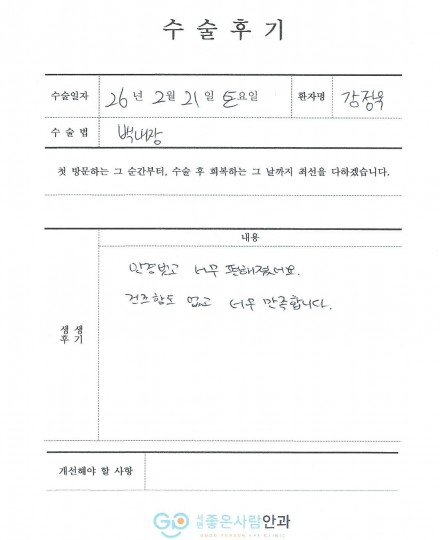 수 술 후 기
수술일자 26 년 2월 21 일 토요일 환자명 감정옥
수 술 법 백내장
첫 방문하는 그 순간부터, 수술 후 회복하는 그 날까지 최선을 다하겠습니다.
내용
안경벗고 너무 편해졌어요.
건조함도 없고 너무 만족합니다.
생 생
후 기
개선해야 할 사항
서면 좋은사람안과
GOOD PERSON EYE CLINIC